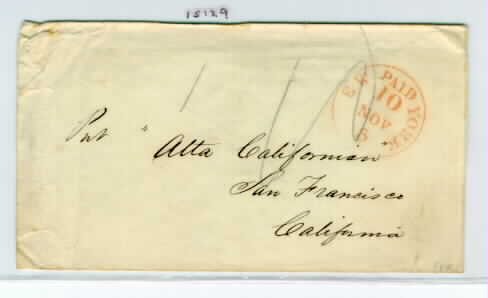 15129
NEW YORK
PAID
10
NOV
5
" Alta Californian "
San Francisco
California